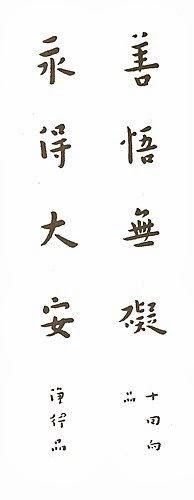 善悟無礙
十回向
品
永得大安
淨行品